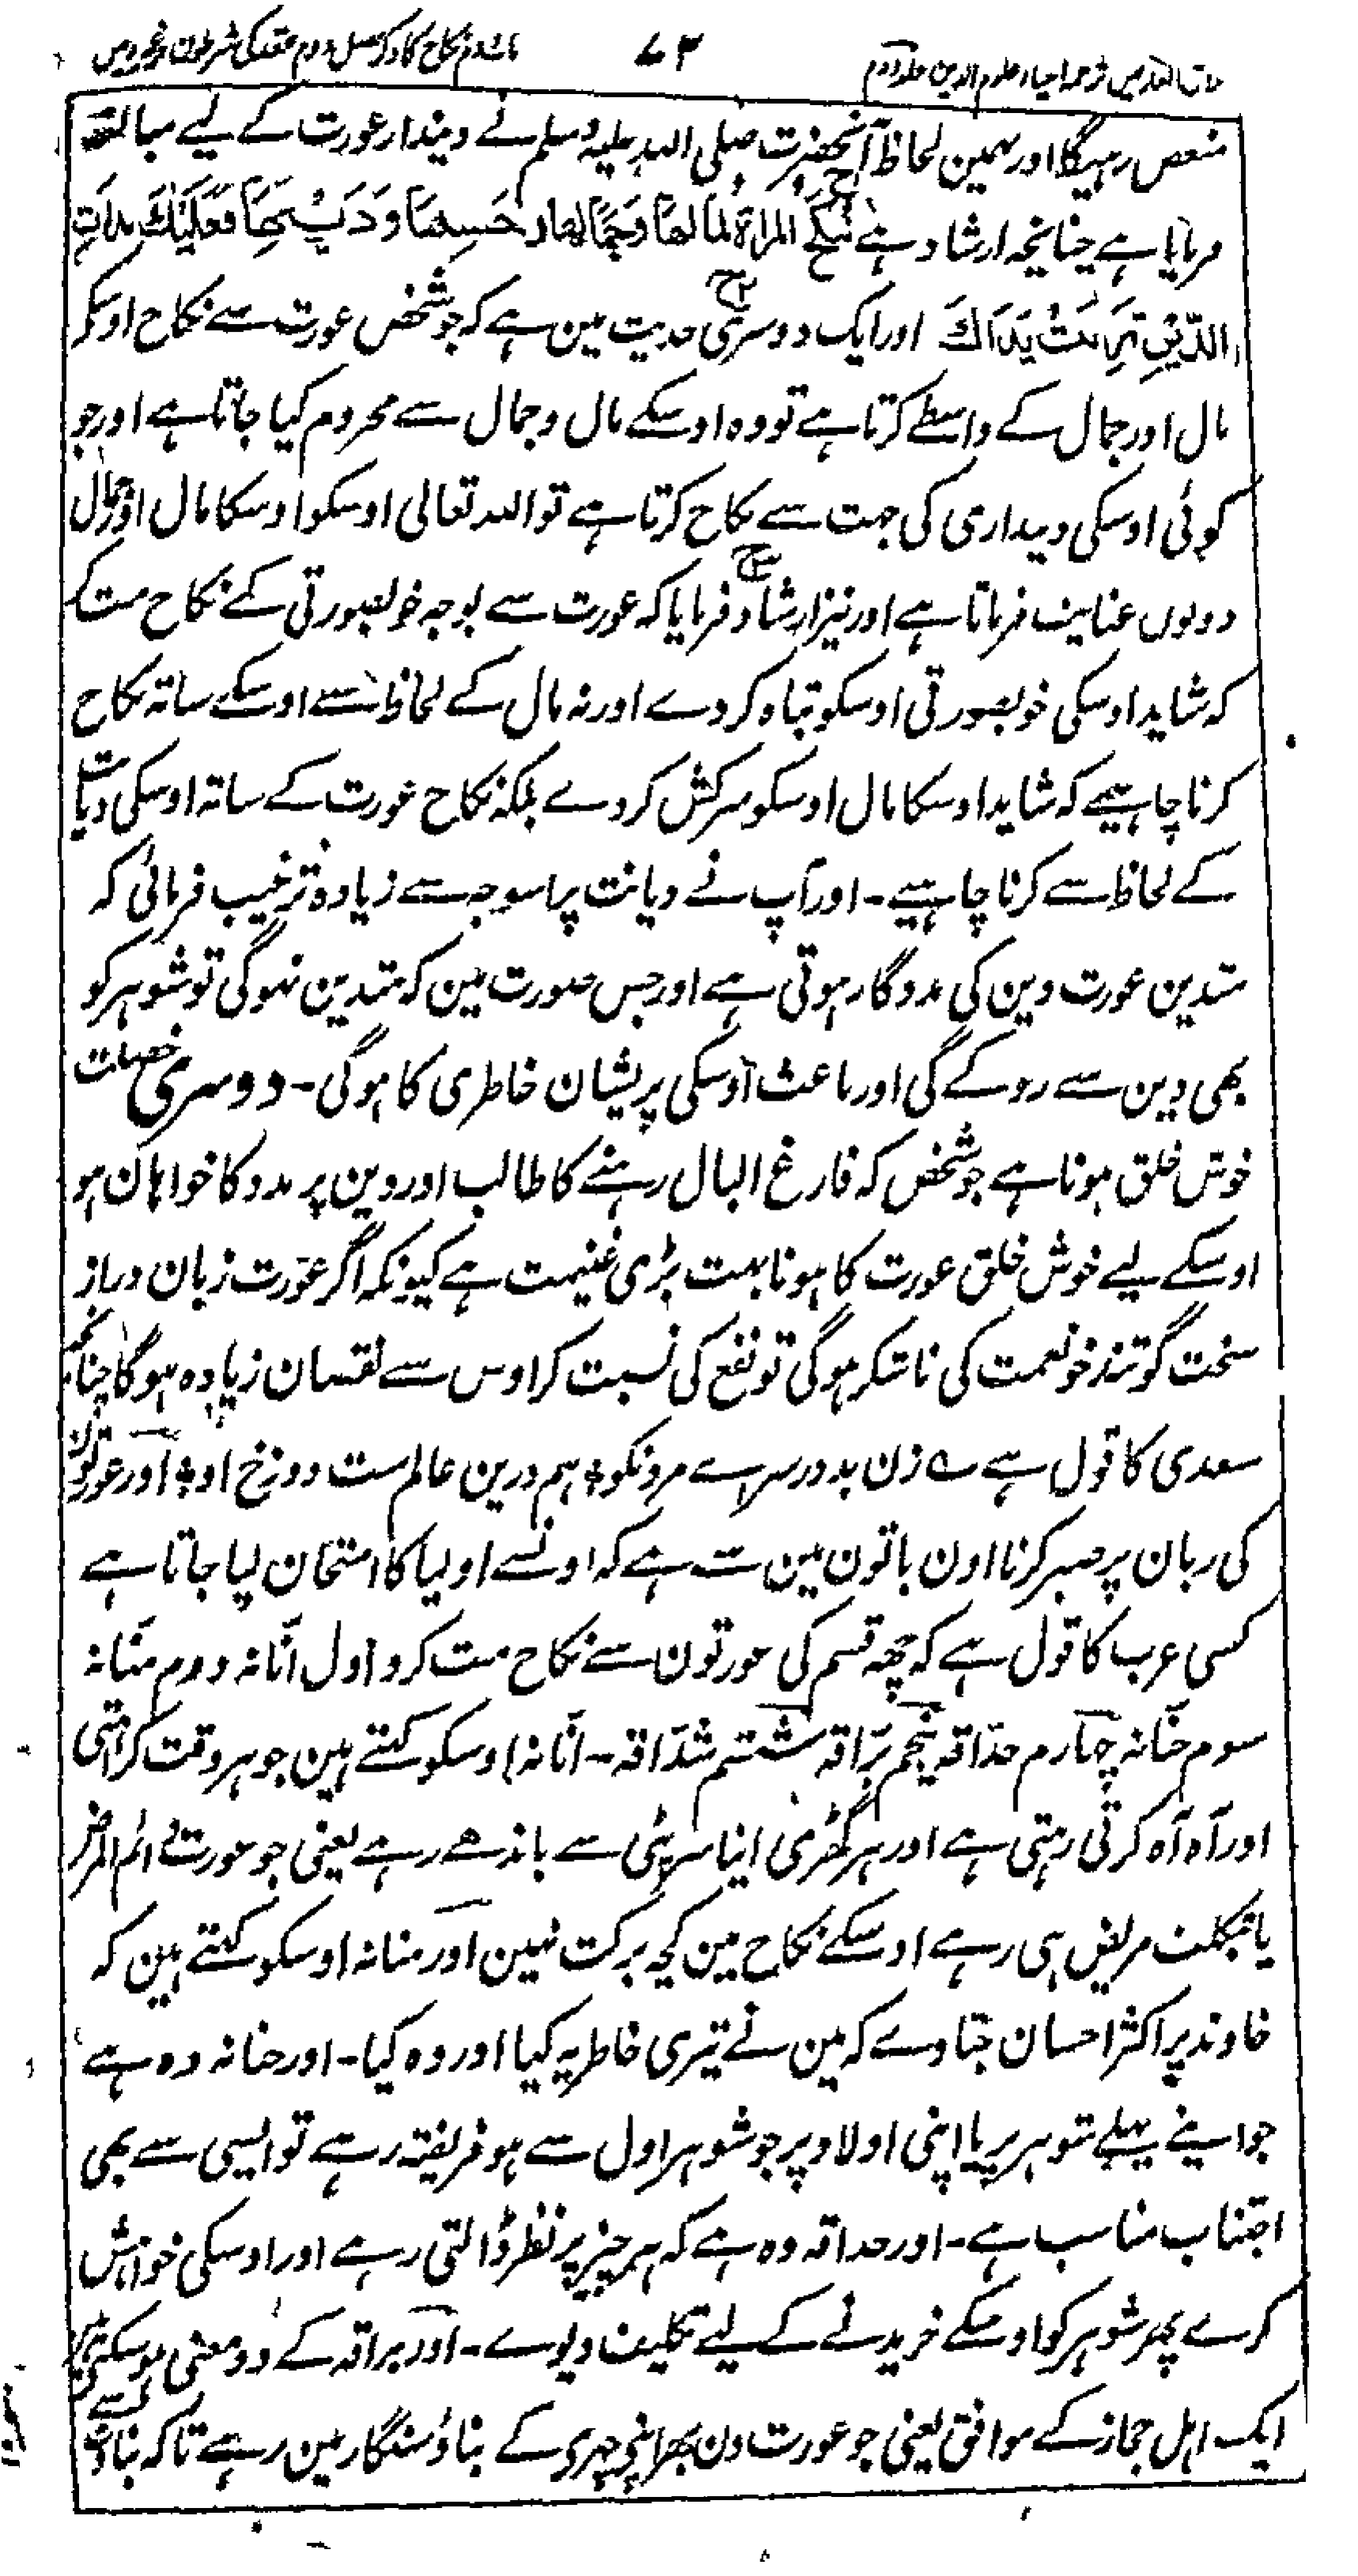 مذاق العارفین ترجمہ احیاء علوم الدین جلد دوم ۷۳ باب دوم نکاح کا ذکر فصل دوم عقد کی شرطون وغیرہ مین
منغص رہیگا اور ہمین لحاظ آنحضرت صلی اللہ علیہ وسلم نے دیندار عورت کے لیے مبالغہ
فرمایا ہے چنانچہ ارشاد ہے تُنْكَحُ المراۃ لمالھا وَجَمَالھا وَحَسبِھَا وَدِينِھَا فَعَلَيْكَ بِذَاتِ
الدِّیْنِ تَرِبَتْ يَدَاكَ اور ایک دوسری حدیث مین ہے کہ جو شخص عورت سے نکاح اوسکے
مال اور جمال کے واسطے کرتا ہے تو وہ اوسکے مال و جمال سے محروم کیا جاتا ہے اور جو
کوئی اوسکی دینداری کی جہت سے نکاح کرتا ہے تو اللہ تعالی اوسکو اوسکا مال اور جمال
دونون عنایت فرماتا ہے اور نیز ارشاد فرمایا کہ عورت سے بوجہ خوبصورتی کے نکاح مت کر
کہ شاید اوسکی خوبصورتی اوسکو تباہ کر دے اور نہ مال کے لحاظ سے اوسکے ساتہ نکاح
کرنا چاہیے کہ شاید اوسکا مال اوسکو سرکش کر دے بلکہ نکاح عورت کے ساتہ اوسکی دیانت
کے لحاظ سے کرنا چاہیے - اور آپ نے دیانت پر اسوجہ سے زیادہ ترغیب فرمائی کہ
متدین عورت دین کی مددگار ہوتی ہے اور جس صورت مین کہ متدین نہوگی تو شوہر کو
بھی دین سے روکے گی اور باعث اوسکی پریشان خاطری کا ہوگی - دوسری خصلت
خوش خلق ہونا ہے جو شخص کہ فارغ البال رہنے کا طالب اور دین پر مدد کا خواہان ہو
اوسکے لیے خوش خلق عورت کا ہونا بہت بڑی غنیمت ہے کیونکہ اگر عورت زبان دراز
سخت گو تند خو نعمت کی ناشکر ہوگی تو نفع کی نسبت کر اوس سے نقصان زیادہ ہوگا چنانچہ
سعدی کا قول ہے ے زن بد در سرے مرد نکو ٭ ہم درین عالم ست دوزخ او ٭ اور عورتون
کی زبان پر صبر کرنا اون باتون مین سے ہے کہ اونسے اولیا کا امتحان لیا جاتا ہے
کسی عرب کا قول ہے کہ چھہ قسم کی عورتون سے نکاح مت کرو اول انّانہ دوم منّانہ
سوم حنّانہ چہارم حدّاقہ پنجم برّاقہ ششم شدّاقہ - انّانہ اوسکو کہتے ہین جو ہر وقت کراہتی
اور آہ آہ کرتی رہتی ہے اور ہر گھڑی اپنا سر پٹی سے باندھے رہے یعنی جو عورت دائم المرض
یا بتکلف مریض ہی رہے اوسکے نکاح مین کچہ برکت نہین اور منانہ اوسکو کہتے ہین کہ
خاوند پر اکثر احسان جتاوے کہ مین نے تیری خاطر یہ کیا اور وہ کیا - اور حنانہ وہ ہے
جو اپنے پہلے شوہر پر یا اپنی اولاد پر جو شوہر اول سے ہو فریفتہ رہے تو ایسی سے بھی
اجتناب مناسب ہے - اور حداقہ وہ ہے کہ ہر چیز پر نظر ڈالتی رہے اور اوسکی خواہش
کرے پھر شوہر کو اوسکے خریدنے کے لیے تکلیف دیوے - اور براقہ کے دو معنی ہوسکتے ہین
ایک اہل حجاز کے موافق یعنی جو عورت دن بھر اپنی چہرے کے بناؤ سنگار مین رہے تاکہ بناؤ سے